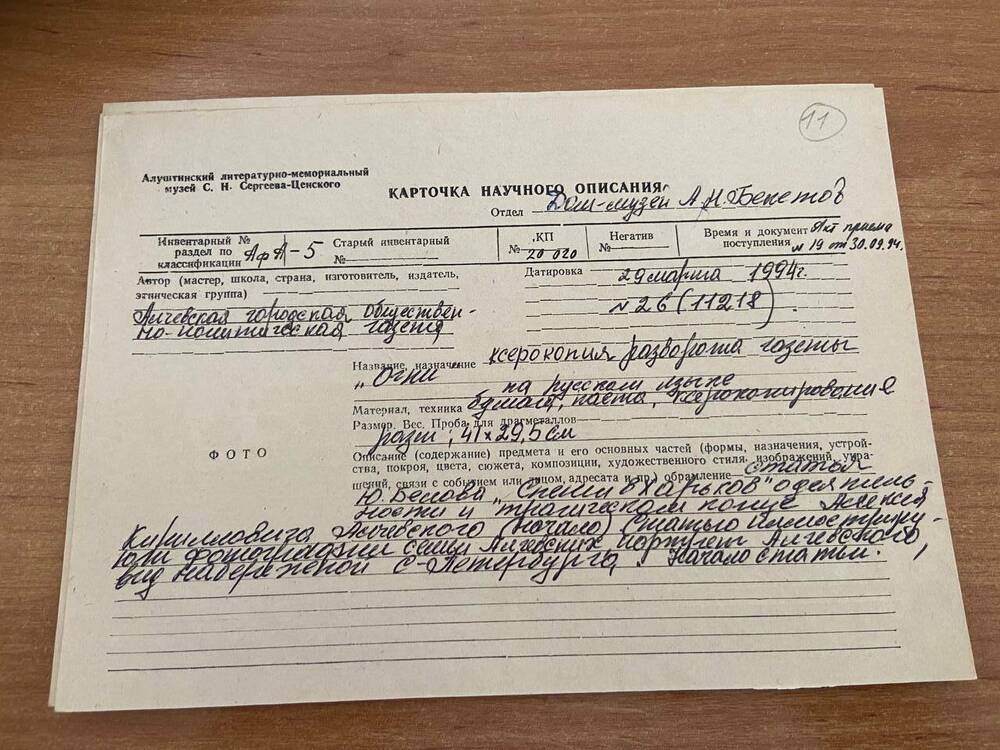 11
Алуштинский литературно-мемориальный
музей С. Н. Сергеева-Ценского
КАРТОЧКА НАУЧНОГО ОПИСАНИЯ
Отдел Дом-музей А.Н.Бекетов
Инвентарный №
раздел по
классификации АфА-5
Старый инвентарный
№
КП
№ 20 020
Негатив
№
Время и документ Акт приема
поступления № 19 от 30.09.94.
Автор (мастер, школа, страна, изготовитель, издатель,
этническая группа)
Алчевская городская обществен-
но-политическая газета
Датировка 29 марта 1994г.
№ 26 (11218)
Название, назначение ксерокопия разворота газеты
"Огни" на русском языке
Материал, техника бумага, паста, ксерокопирование
Размер. Вес. Проба для драгметаллов
разм; 41 х 29,5 см
ФОТО
Описание (содержание) предмета и его основных частей (формы, назначения, устрой-
ства, покроя, цвета, сюжета, композиции, художественного стиля, изображений, укра-
шений, связи с событием или лицом, адресата и пр.) обрамление статья
Ю. Белова "Спешив Харьков" о деятель-
ности и трагическом конце Алексея
Кирилловича Алчевского (начало) Статью иллюстриру-
юли фотографии семьи Алчевских портрет Алчевского,
вид набережной С-Петербурга, Начало статьи.